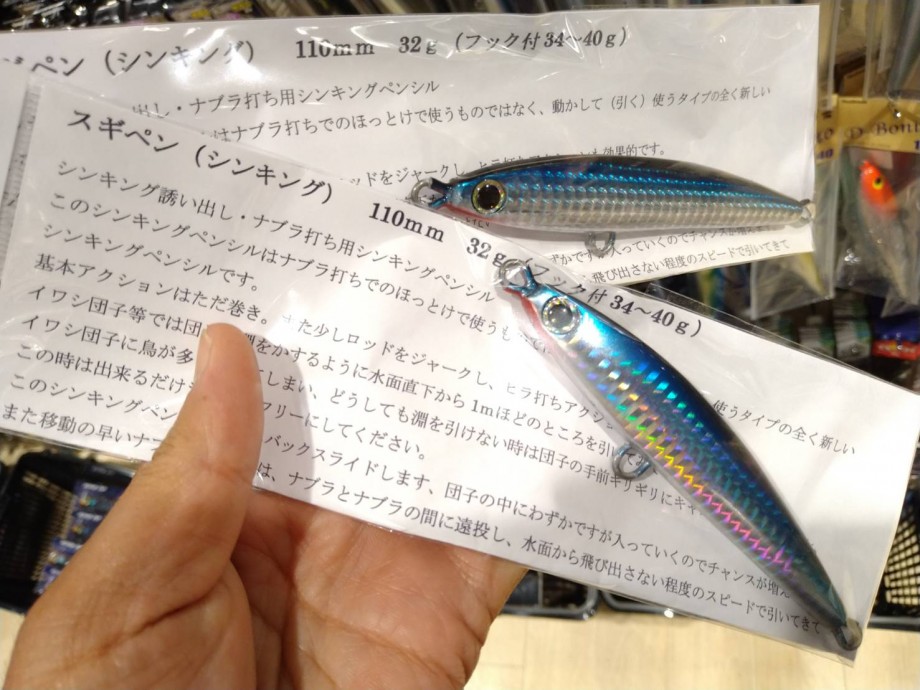 ペン（シンキング） 110mm 32g（フック付34～40g）
出し・ナブラ打ち用シンキングペンシル
はナブラ打ちでのほっとけで使うものではなく、動かして（引く）使うタイプの全く新しい
ロッドをジャークし、
も効果的です。
入っていくのでチャンスが
飛び出さない程度のスピードで引いてきて
スギペン（シンキング） 110mm 32g（フック付34～40g）
シンキング誘い出し・ナブラ打ち用シンキングペンシル
このシンキングペンシルはナブラ打ちでのほっとけで使うも
使うタイプの全く新しい
シンキングペンシルです。
基本アクションはただ巻き。また少しロッドをジャークし、ヒラ打ちアクシ
イワシ団子等では団
淵をかするように水面直下から1mほどのところを引い
イワシ団子に鳥が多
しまい、どうしても淵を引けない時は団子の手前ギリギリにキャ
この時は出来るだけ
フリーにしてください。
このシンキングペン
バックスライドします、団子の中にわずかですが入っていくのでチャンスが増
また移動の早いナブ
は、ナブラとナブラの間に遠投し、水面から飛び出さない程度のスピードで引いてきて